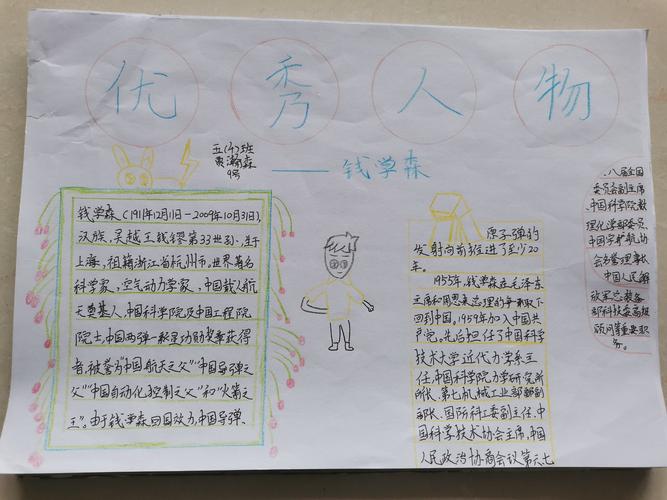 优秀人物
五(4)班
9号
——钱学森
钱学森(1911年12月11日-2009年10月31日),
汉族,吴越王钱镠第33世孙,生于
上海,祖籍浙江省杭州市。世界著名
科学家,空气动力学家,中国载人航
天奠基人,中国科学院及中国工程院
院士,中国两弹一星功勋奖章获得
者,被誉为"中国航天之父""中国导弹之
父""中国自动化控制之父"和"火箭之
王"。由于钱学森回国效力,中国导弹、
原子弹的
发射向前推进了至少20
年。
1955年,钱学森在毛泽东
主席和周恩来总理的争取下
回到中国。1959年加入中国共
产党。先后担任了中国科学
技术大学近代力学系主
任,中国科学院力学研究所
所长、第七机械工业部副部
部长、国防科工委副主任、中
国科学技术协会主席、中国
人民政治协商会议第六七
、八届全国
委员会副主席
中国科学院数
理化学部委员、
中国宇航协
会名誉理事长
中国人民解
放军总装备
部科技委高级
顾问等重要职
务。